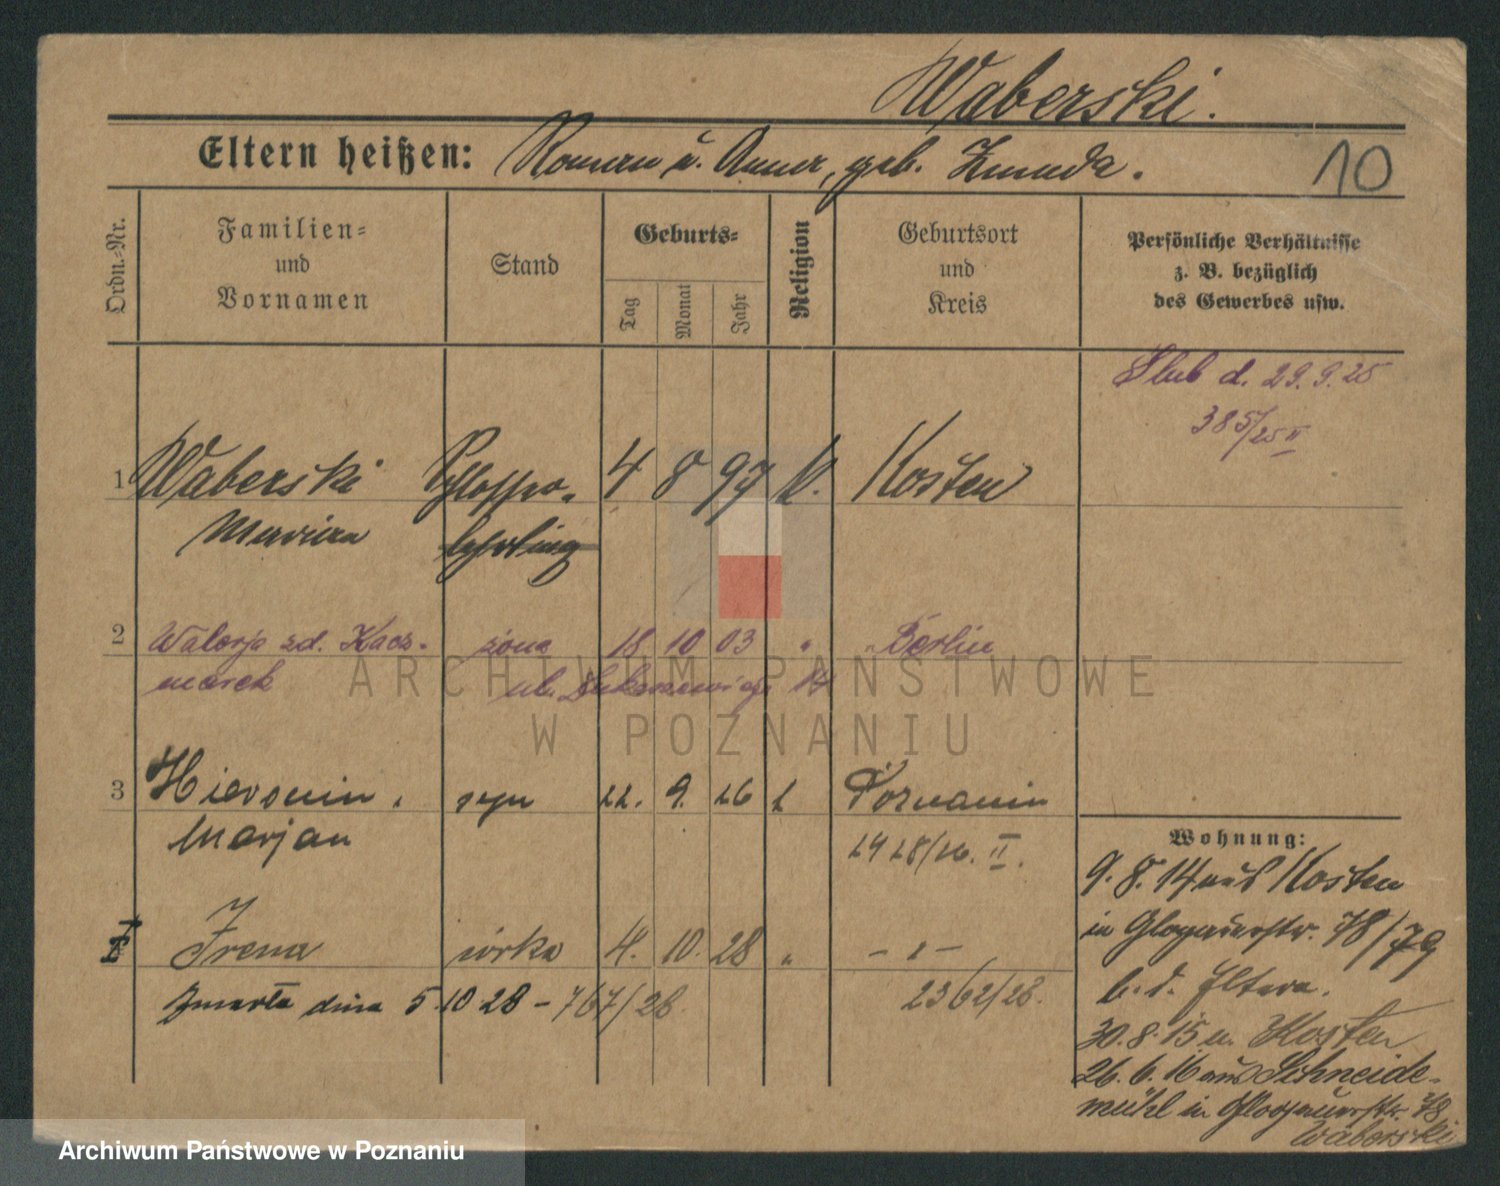 Waberski.
Eltern heißen: Roman u. Anna, geb. Zmuda.
10
Ordn.-Nr.
Familien-
und
Vornamen
Stand
Geburts-
Tag
Monat
Jahr
Religion
Geburtsort
und
Kreis
Persönliche Verhältnisse
z. B. bezüglich
des Gewerbes usw.
Ślub d. 29.9.25
385/25 II
1 Waberski Schlosser- 4 8 97 k. Kosten
Maryan lehrling
2 Walerja zd. Kacz- żona 18 10 03 " " Berlin
marek ul. 14
3 Hieronim, syn 22. 9. 26 Poznaniu
Marjan 2428/26. II.
Irena córka 4. 10. 28 " - " -
Zmarła dnia 5.10 28 - 767/28. 2362/28.
Wohnung:
9. 8. 14 aus Kosten
in Glogauerstr. 78/79
b. d. Eltern.
30. 8. 15 n. Kosten
26. 6. 16 aus Schneide-
mühl in Glogauerstr. 78
Waberski
ARCHIWUM PAŃSTWOWE
W POZNANIU
Archiwum Państwowe w Poznaniu